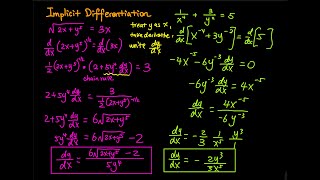 Implicit Differentiation
√(2x+y⁵) = 3x
d/dx (2x+y⁵)^(1/2) = d/dx (3x)
1/2 (2x+y⁵)^(-1/2) · (2+5y⁴ dy/dx) = 3
chain rule
2+5y⁴ dy/dx = 3 / (1/2 (2x+y⁵)^(-1/2))
2+5y⁴ dy/dx = 6√(2x+y⁵)
5y⁴ dy/dx = 6√(2x+y⁵) - 2
dy/dx = (6√(2x+y⁵) - 2) / 5y⁴
treat y as x,
take derivative,
write dy/dx
1/x⁴ + 3/y² = 5
d/dx [x⁻⁴ + 3y⁻²] = d/dx [5]
-4x⁻⁵ - 6y⁻³ dy/dx = 0
-6y⁻³ dy/dx = 4x⁻⁵
dy/dx = 4x⁻⁵ / -6y⁻³
dy/dx = - 2/3 · 1/x⁵ · y³/1
dy/dx = - 2y³/3x⁵